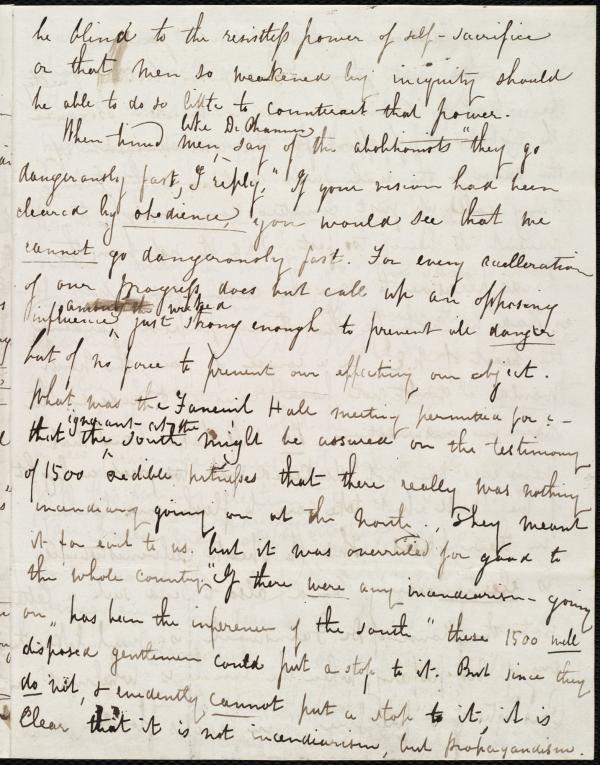 be blind to the resistless power of self-sacrifice
or that men so weakened by iniquity should
be able to do so little to counteract that power.
When timid like Dr Channing men, say of the abolitionists "they go
dangerously fast, I reply, "If your vision had been
cleared by obedience, you would see that we
cannot go dangerously fast. For every accelleration
of our progress does but call up an opposing
influence, among the wicked just strong enough to prevent all danger
but of no force to prevent our effecting our object.
What was the Faneuil Hall meeting permitted for? -
that the ignorant at the South might be assured on the testimony
of 1500 credible witnesses that there really was nothing
incendiary going on at the North. They meant
it for evil to us. but it was overruled for good to
the whole country. "If there were any incendiarism going
on" has been the inference of the South "these 1500 well
disposed gentlemen could put a stop to it. But since they
do not, & evidently cannot put a stop to it, it is
clear that it is not incendiarism, but propagandism.